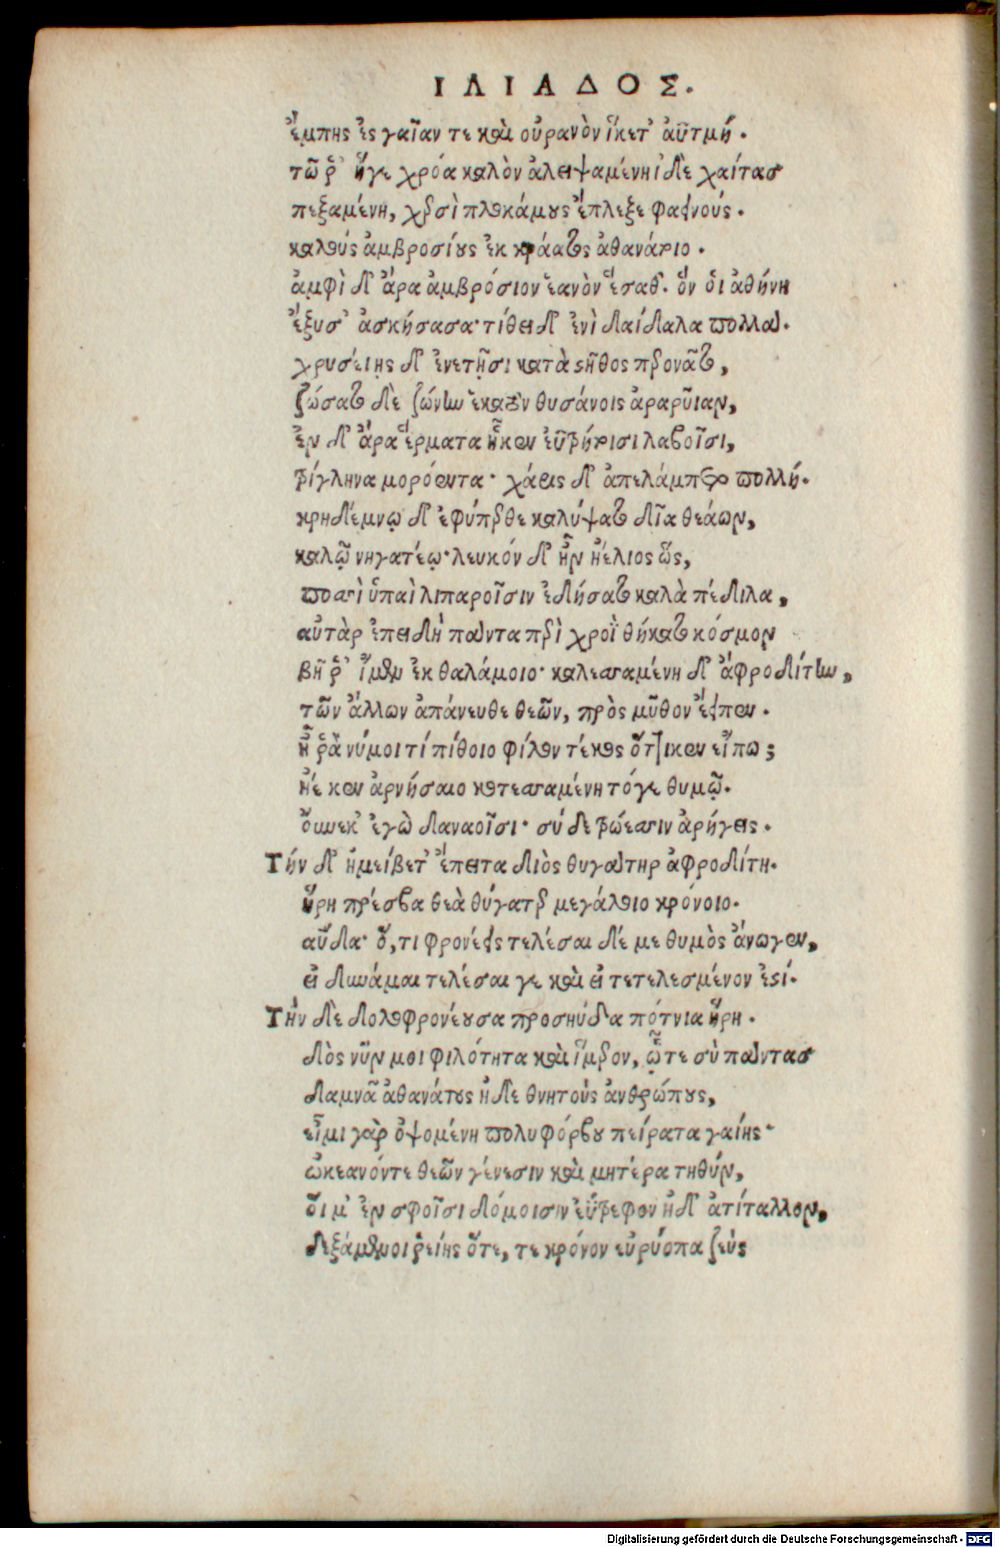 ΙΛΙΑΔΟΣ.
ἔμπης ἐς γαῖαν τε καὶ οὐρανὸν ἵκετ' ἀϋτμή.
τῶ ῥ' ἥγε χρόα καλὸν ἀλειψαμένη ἰδὲ χαίτας
πεξαμένη, χερσὶ πλοκάμους ἔπλεξε φαεινούς.
καλοὺς ἀμβροσίους ἐκ κράατος ἀθανάτοιο.
ἀμφὶ δ' ἄρα ἀμβρόσιον ἑανὸν ἕσαθ'. ὅν οἱ ἀθήνη
ἔξυσ' ἀσκήσασα· τίθει δ' ἐνὶ δαίδαλα πολλά.
χρυσείῃς δ' ἐνετῇσι κατὰ στῆθος περονᾶτο,
ζώσατο δὲ ζώνην ἑκατὸν θυσάνοις ἀραρῦιαν,
ἐν δ' ἄρα ἕρματα ἧκεν ἐϋτρήτοισι λοβοῖσι,
τρίγληνα μορόεντα· χάρις δ' ἀπελάμπετο πολλή.
κρηδέμνῳ δ' ἐφύπερθε καλύψατο δῖα θεάων,
καλῷ νηγατέῳ· λευκόν δ' ἦν ἠέλιος ὥς,
ποσσὶ ὑπαὶ λιπαροῖσιν ἐδήσατο καλὰ πέδιλα,
αὐτὰρ ἐπειδὴ πάντα περὶ χροῒ θήκατο κόσμον
βῆ ῥ' ἴμεν ἐκ θαλάμοιο· καλεσσαμένη δ' ἀφροδίτην,
τῶν ἄλλων ἀπάνευθε θεῶν, πρὸς μῦθον ἔειπεν.
ἦ ῥὰ νύ μοι τί πίθοιο φίλον τέκος ὅττι κεν εἴπω;
ἠέ κεν ἀρνήσαιο κοτεσσαμένη τόγε θυμῷ.
οὕνεκ' ἐγὼ δαναοῖσι· σύ δε τρώεσσιν ἀρήγεις.
Τήν δ' ἠμείβετ' ἔπειτα διὸς θυγάτηρ ἀφροδίτη.
ἥρη πρέσβα θεὰ θύγατερ μεγάλοιο κρόνοιο.
αὔδα· ὅ,τι φρονέεις τελέσαι δέ με θυμὸς ἄνωγεν,
εἰ δύναμαι τελέσαι γε καὶ εἰ τετελεσμένον ἐστί.
Τὴν δὲ δολοφρονέουσα προσηύδα πότνια ἥρη.
δὸς νῦν μοι φιλότητα καὶ ἵμερον, ᾧτε σὺ πάντας
δαμνᾶ ἀθανάτους ἠδὲ θνητοὺς ἀνθρώπους,
εἶμι γὰρ ὀψομένη πολυφόρβου πείρατα γαίης·
ὠκεανόντε θεῶν γένεσιν καὶ μητέρα τηθύν,
οἵ μ' ἐν σφοῖσι δόμοισιν ἐΰτρεφον ἠδ' ἀτίταλλον,
δεξάμενοι ῥείης ὅτε, τε κρόνον εὐρύοπα ζεὺς
Digitalisierung gefördert durch die Deutsche Forschungsgemeinschaft - DFG